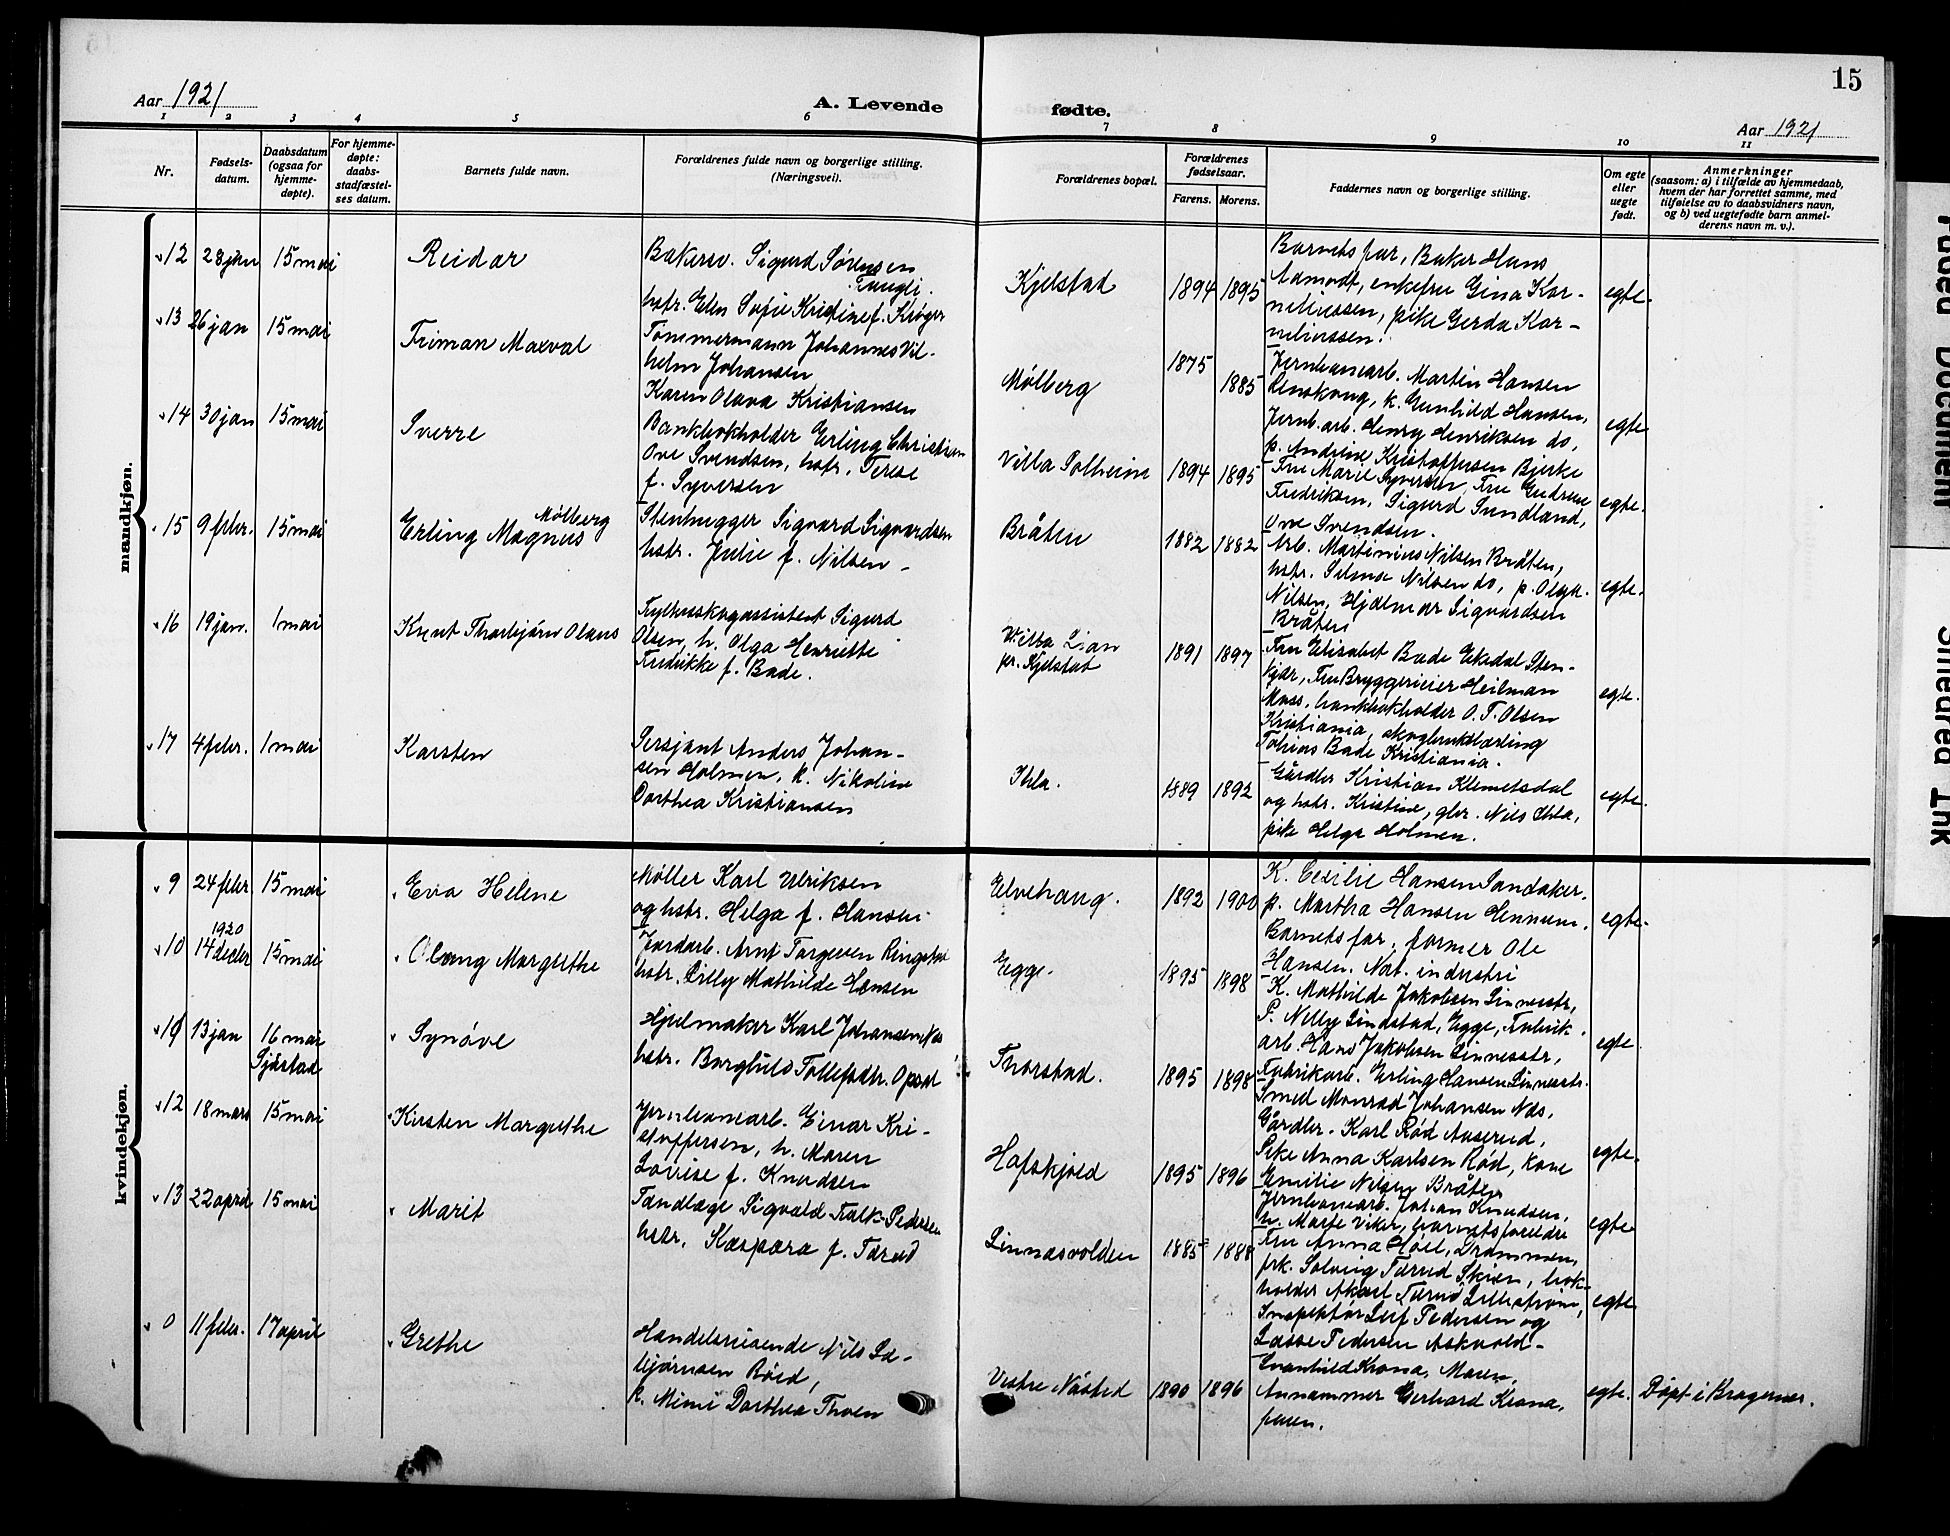 15
Aar 1921
A. Levende fødte.
Aar 1921
1 2 3 4 5 6 7 8 9 10 11
Nr.
Fødsels-
datum.
Daabsdatum
(ogsaa for
hjemme-
døpte).
For hjemme-
døpte:
daabs-
stadfæstel-
ses datum.
Barnets fulde navn.
Forældrenes fulde navn og borgerlige stilling.
(Næringsvei).
Forældrenes bopæl.
Forældrenes
fødselsaar.
Farens. Morens.
Faddernes navn og borgerlige stilling.
Om egte
eller
uegte
født.
Anmerkninger
(saasom: a) i tilfælde av hjemmedaab,
hvem der har forrettet samme, med
tilføielse av to daabsvidners navn,
og b) ved uegtefødte barn anmel-
derens navn m. v.).
mandkjøn.
12 28 jan 15 mai
Reidar
Bakersv. Sigurd Sørensen
hstr. Elen Sofie Kristine f. Krøger
Kjelstad
1894 1895
Barnets far, Baker Hans
Aamodt, enkefru Gina Kor-
neliussen, pike Gerda Kor-
neliussen.
egte.
13 26 jan 15 mai
Tømmermann Johannes Vil-
helm Johansen
Karen Olava Kristiansen
Mølberg
1875 1885
Jernbanearb. Martin Hansen
k. Gunhild Hansen,
Jernb. arb. Henry Henriksen do,
p. Andrine Kristoffersen Bjerke
egte
14 30 jan 15 mai
Sverre
Bankbokholder Erling Christian
Ove Svendsen, hstr. Terese
f. Syversen
Villa Solheim
1894 1895
Fru Marie Syversen, Fru
Fredriksen, Sigurd Sundland,
Ove Svendsen.
egte.
15 9 febr. 15 mai
Mølberg
Erling Magnus
Stenhugger Sigvard Sigvardsen
hstr. Julie f. Nilsen
Bråten
1882 1882
Arb. Martinius Nilsen Bråten,
hstr. Selma Nilsen do, p. Olga
Nilsen, Hjalmar Sigvardsen
Bråten
egte.
16 19 jan. 1 mai
Knut Thorbjørn Olaus
Fylkesskogassistent Sigurd
Olsen, h. Olga Henriette
Fredrikke f. Bade.
Villa Lian
pr. Kjelstad
1891 1897
Fru Elisabet Bade Eksdal Sten-
kjær, Fru Bryggerieier Heilman
Moss, bankbokholder O. T. Olsen
Kristiania,
Tobias Bade Kristiania.
egte.
17 4 febr. 1 mai
Karsten
Sersjant Anders Johan-
sen Holmen, k. Nikoline
Dorthea Kristiansen
Ihla.
1889 1892
Gårdbr Kristian Klemetsdal
og hstr. Kristine, gbr. Nils Ihla,
pike Helga Holmen.
egte.
kvindekjøn.
9 24 febr 15 mai
Eva Helene
Møller Karl Ulriksen
og hstr. Helga f. Hansen
Elvehaug.
1892 1900
K. Cecilie Hansen Sandaker.
p. Martha Hansen Hennum.
Barnets far, former Ole
Hansen. Nat. industri
egte.
1920
10 14 decbr 15 mai
Olaug Margrethe
Jordarb. Arnt Torgeven Ringstad
hstr. Lilly Mathilde Hansen
Egge.
1895 1898
K. Mathilde Jakobsen Linnesstr,
P. Nelly Lindstad, Egge, Fabrik.
arb. Hans Jakobsen Linnesstr,
Fabrikarb. Erling Hansen Linnesstr.
egte
13 jan 16 mai
Sjåstad
Synøve
Hjulmaker Karl Johansen Næs
hstr. Borghild Tollefsdtr. Opsal
Thorstad.
1895 1898
Smed Monrad Johansen Næs,
Gårdbr. Karl Rød Auserud,
Pike Anna Karlsen Rød, kone
Emilie Nilsen Bråten
egte.
12 18 mars 15 mai
Kirsten Margrethe
Jernbanearb. Einar Kri-
stoffersen, h. Maren
Lovise f. Knudsen
Hofskjold
1895 1896
Jernbanearb. Johan Knudsen,
h. Marte Viker, barnets foreldre
egte
13 22 april 15 mai
Marit
Tandlæge Sigvald Falk-Pedersen
hstr. Kaspara f. Tærud
Linnæsvolden
1885 1888
Fru Anna Høil, Drammen,
frk. Solveig Tærud Skien, bok-
holder Aksel Tærud Lillestrøm,
Inspektør Leif Pedersen og
Lasse Pedersen Askvold
egte
0 11 febr. 17 april
Grethe
Handelsreisende Nils
k. Mimi Dorthea Thoen
Vestre Nøsted
1890 1896
Svanhild Krona, Maren,
Gerhard Krona,
faren.
egte.
Døpt i Bragernes.
Faded Document
Smeared Ink